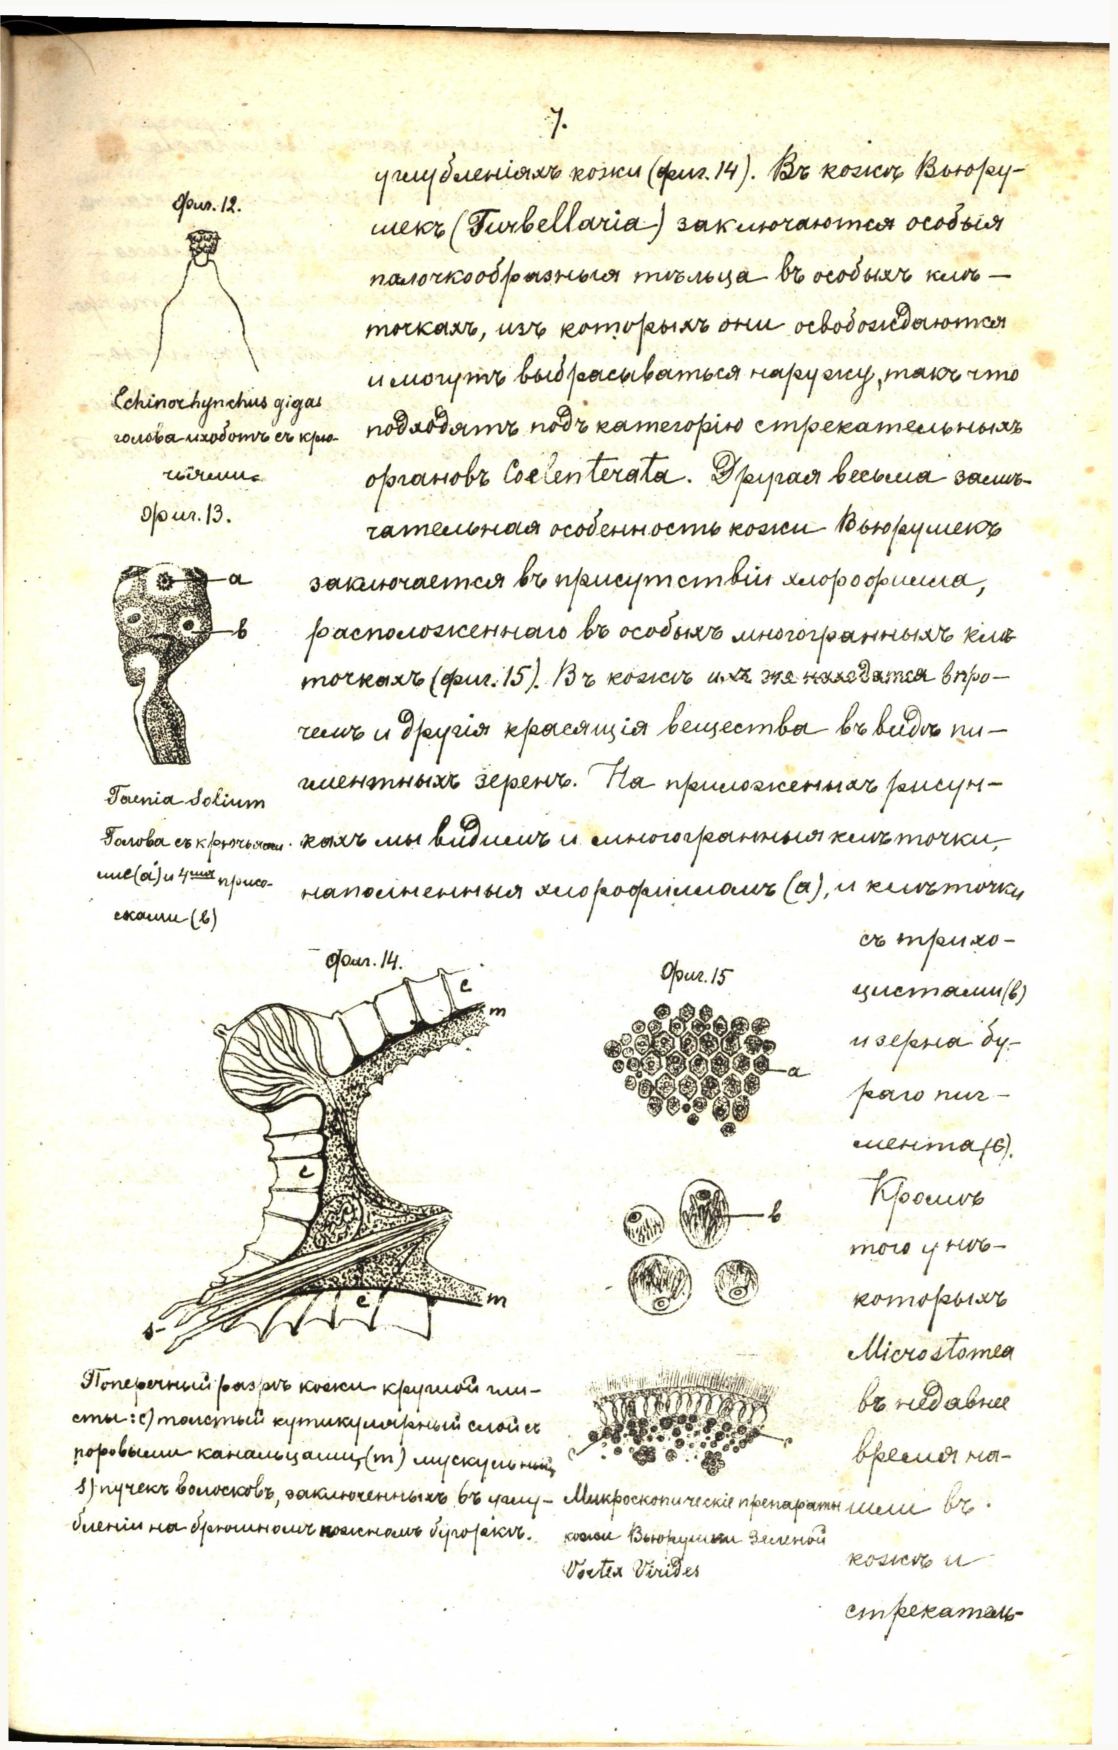 7.
углубленіяхъ кожи (фиг. 14). Въ кожѣ Вьюру-
шекъ (Turbellaria) заключаются особыя
палочкообразныя тѣльца въ особыхъ клѣ-
точкахъ, изъ которыхъ они освобождаются
и могутъ выбрасываться наружу, такъ что
подходятъ подъ категорію стрекательныхъ
органовъ Coelenterata. Другая весьма замѣ-
чательная особенность кожи Вьюрушекъ
заключается въ присутствіи хлорофилла,
расположеннаго въ особыхъ многогранныхъ клѣ
точкахъ (фиг. 15). Въ кожѣ ихъ же находятся впро-
чемъ и другія красящія вещества въ видѣ пи-
гментныхъ зеренъ. На приложенныхъ рисун-
кахъ мы видимъ и многогранныя клѣточки,
наполненныя хлорофилломъ (а), и клѣточки
съ трихо-
цистами (в)
и зерна бу-
раго пиг-
мента (с).
Кромѣ
того у нѣ-
которыхъ
Microstomea
въ недавнее
время на-
шли въ
кожѣ и
стрекатель-
Фиг. 12.
Echinorhynchus gigas
голова-хоботъ съ крю-
чьями.
Фиг. 13.
а
в
Taenia Solium
Голова съ крючьями
(а) и 4мя присо-
сками (в)
Фиг. 14.
c
m
c
c
m
s
Поперечный разрѣзъ кожи круглой гли-
сты: с) толстый кутикулярный слой съ
поровыми канальцами, (m) мускульный,
s) пучекъ волосковъ, заключенныхъ въ углу-
бленіи на брюшномъ кожномъ бугоркѣ.
Фиг. 15
а
в
с
Микроскопическіе препараты
кожи Вьюрушки зеленой
Vortex Virides